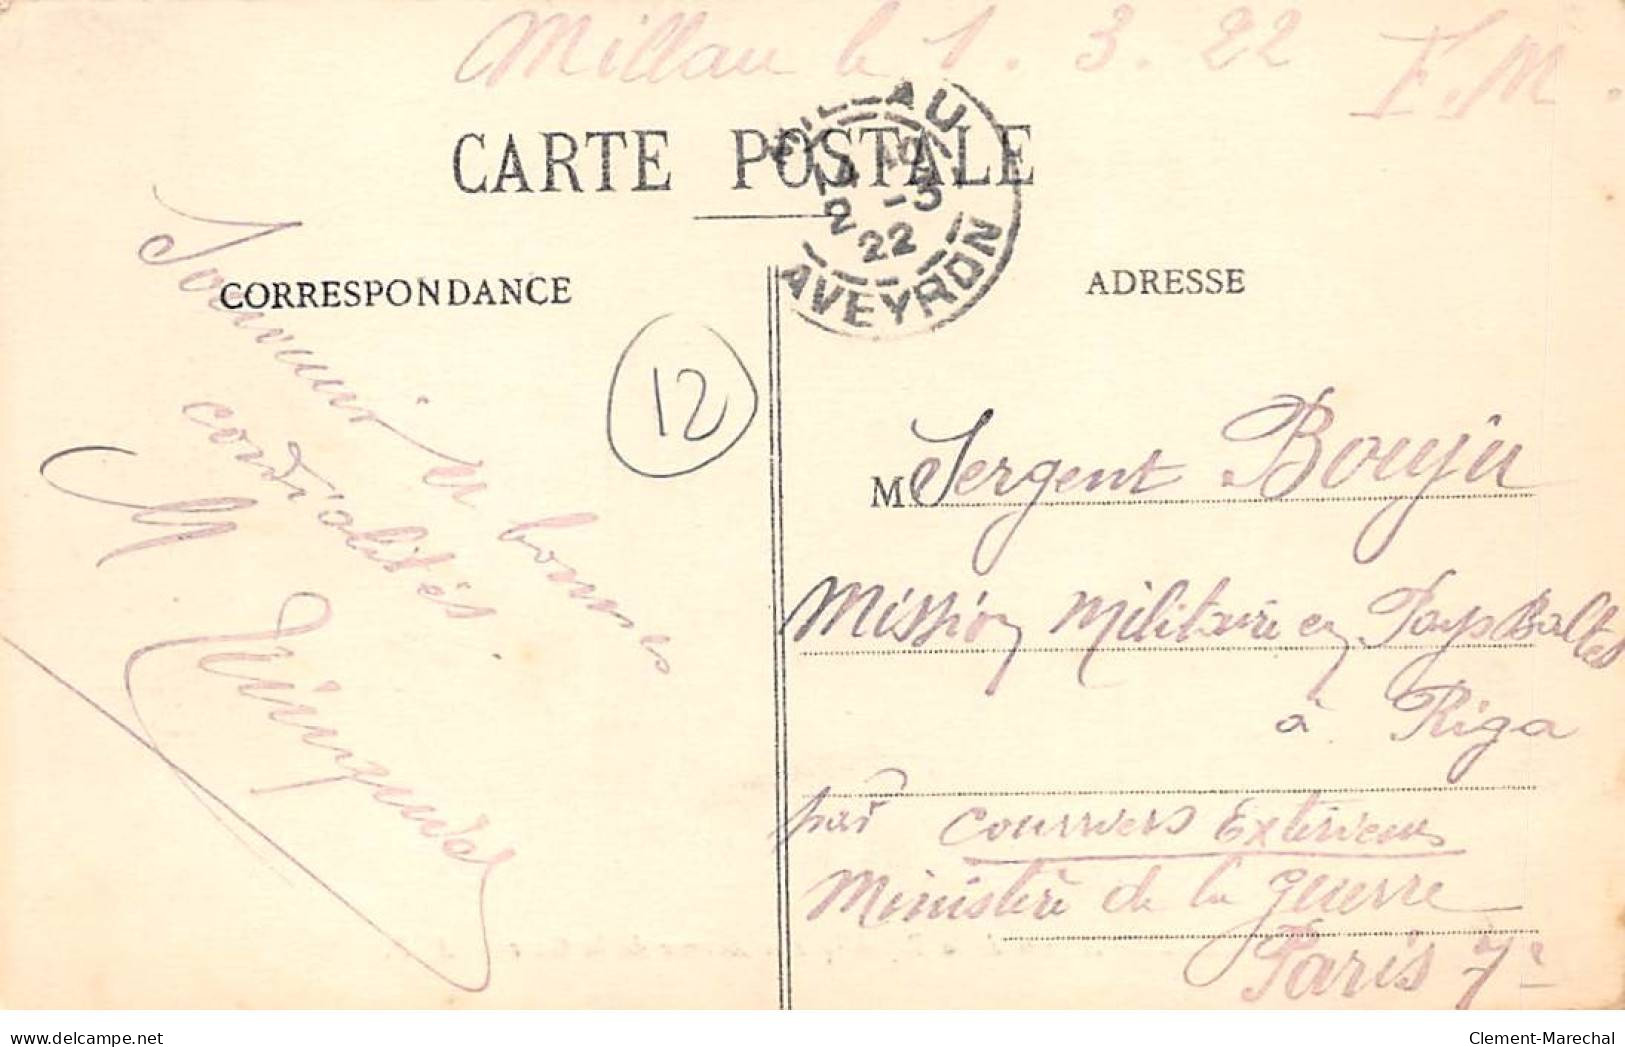 Millau le 1. 3. 22 F.M.
CARTE POSTALE
MILLAU
22
AVEYRON
CORRESPONDANCE
ADRESSE
12
Souvenir et bonnes
cordialités.
M
M Sergent Bouju
Mission Militaire en Pays Baltes
à Riga
par Courriers Extérieurs
Ministère de la Guerre
Paris 7e
delcampe.net
Clement-Marechal